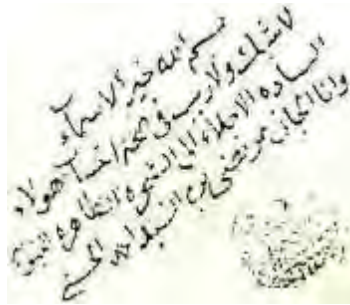 بسم الله خير الاسماء
لا شك ولا ريب في صحة انتساب هولاء
السادة الاجلاء الى الشجرة الطاهرة النبوية
وانا الجاني مرتضى ابن السيد احمد الحسيني